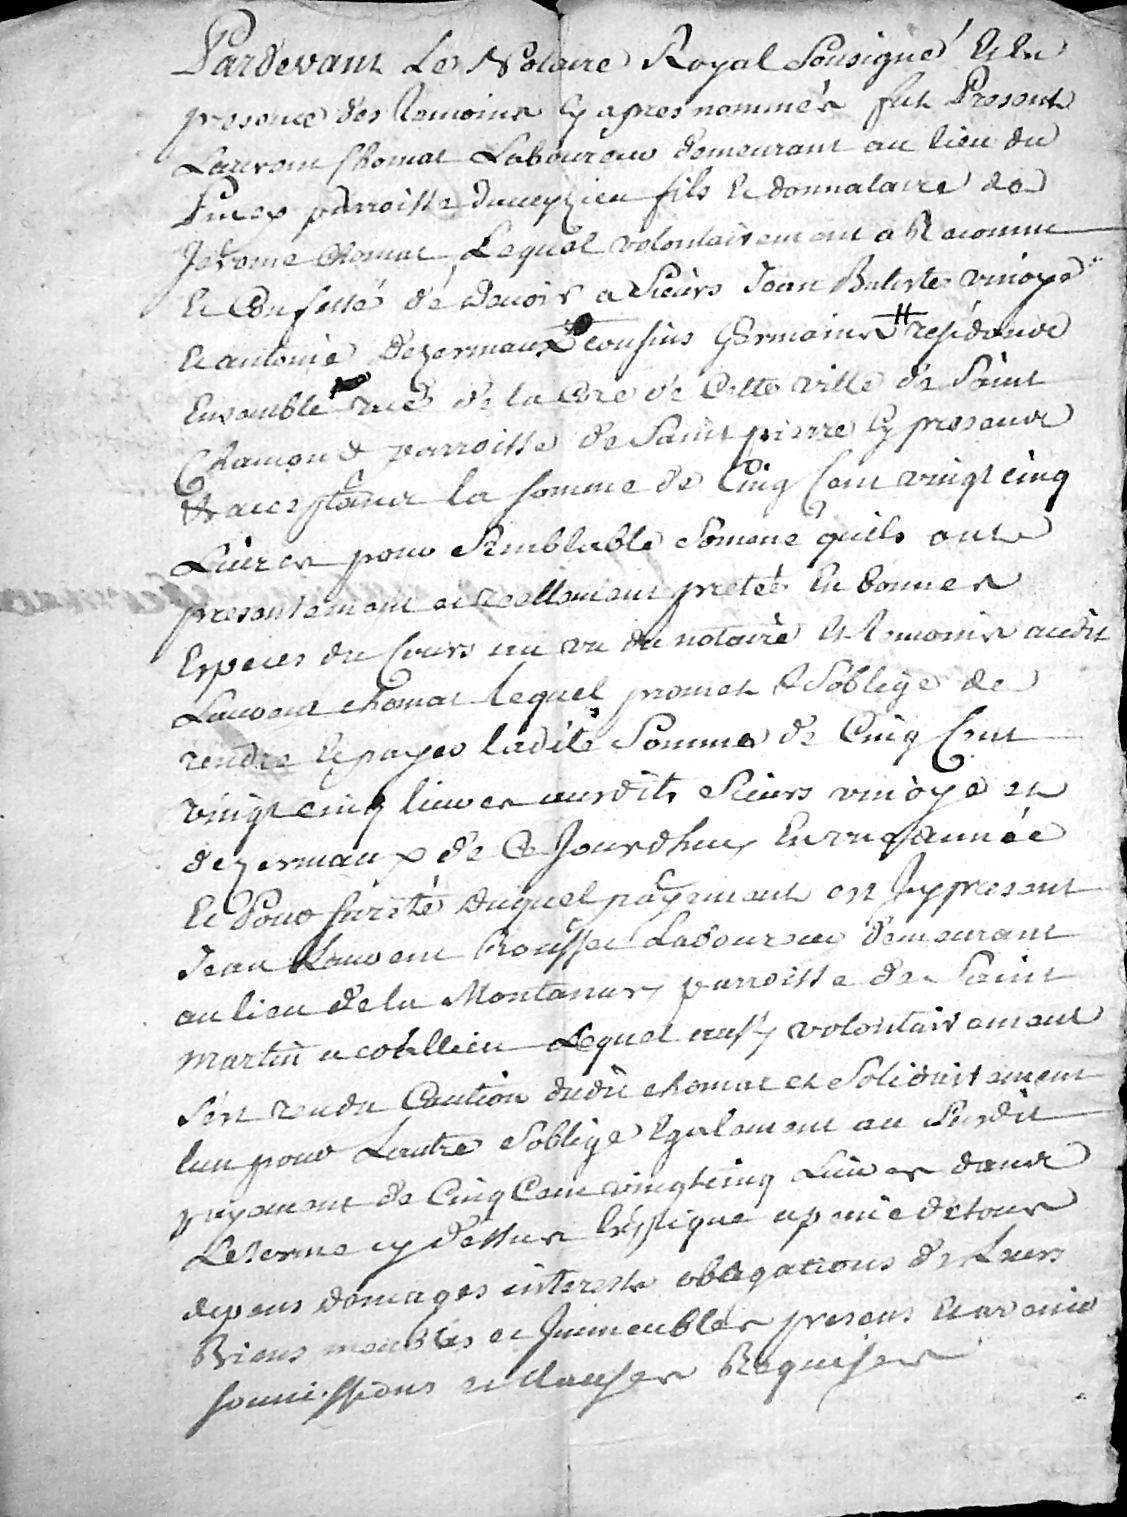 Pardevant Le Notaire Royal Sousigné Et En
presence des temoins Cy apres nommés fut Present
Laurent Chomat Laboureur demeurant au lieu du
parroisse fils Et donnataire de
Jerome Chomat Lequel volontairement a Reconnu
Et Confessé dé Devoir a Sieurs Jean Batiste vinoye
Et antoine Dezermaux cousins Germains # residants
Ensemble rue de la Cire de Cette ville de Saint
Chamond parroisse de Saint pierre Cy presants
& acceptants la somme de Cinq Cent vingt cinq
Livres pour Semblable Somme quils ont
presentement et reellement pretée En bonnes
Especes du Cours au vu du notaire Et temoins audit
Laurent chomat lequel promet & Soblige de
rendre Et payer ladite Somme de Cinq Cent
vingt cinq livres ausdits Sieurs vinoye et
dezermaux de Ce Jourdhuy En une année
Et Pour sureté duquel payement est Icy present
Jean Laurent Rousset Laboureur demeurant
au lieu de la Montanary parroisse de Saint
martin a coallieu Lequel aussy volontairement
Sest rendu Caution dudit chomat et Solidairement
lun pour Lautre Soblige Egalement au Susdit
payement de Cinq Cent vingt cinq Livres dans
Le terme cy dessus Expliqué a peine de tous
depens domages interests obligations de Leurs
Biens meubles et Immeubles presens Et avenir
soumissions et clauses Requises